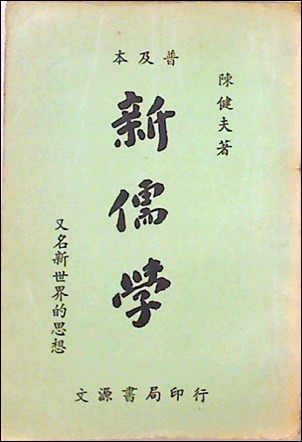 普及本
陳健夫著
新儒学
又名新世界的思想
文源書局印行